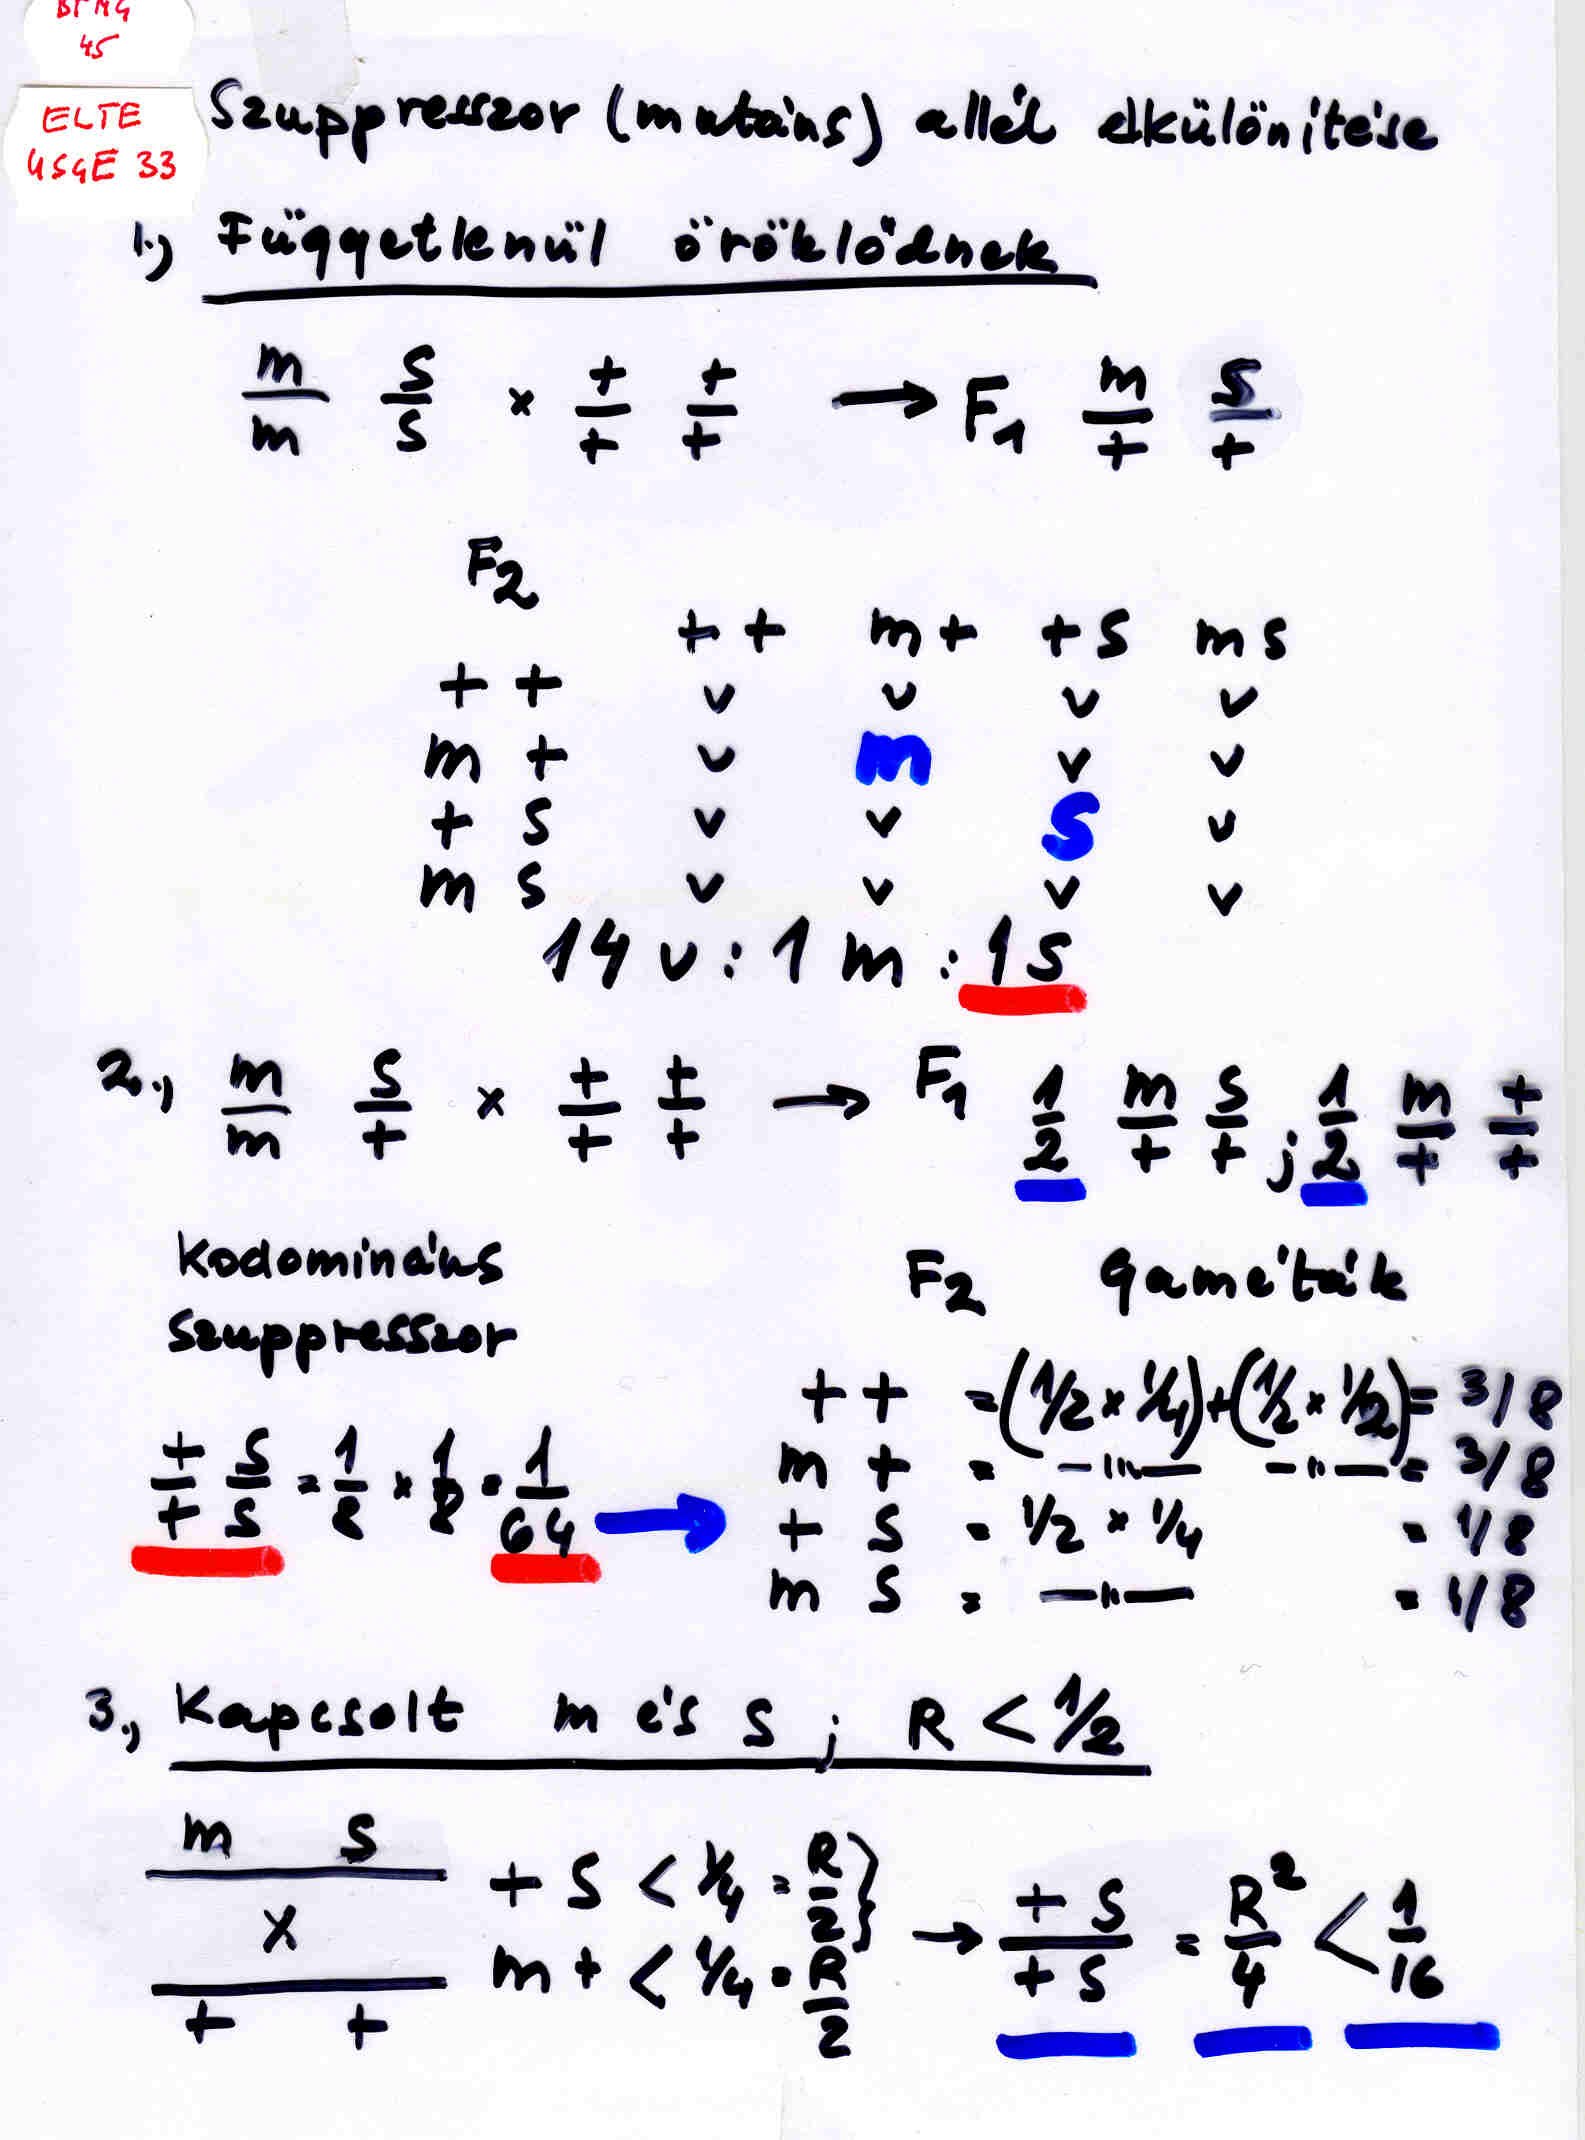 BPMG
45
ELTE
USGE 33
Szuppresszor (mutáns) allél elkülönítése
1.) Függetlenül öröklődnek
m/m S/S × +/+ +/+ → F1 m/+ S/+
F2
+ + m + + S m s
+ + v v v v
m + v m v v
+ s v v S v
m s v v v v
14 v : 1 m : 1 s
2., m/m S/+ × +/+ +/+ → F1 1/2 m/+ S/+ ; 1/2 m/+ +/+
Kodomináns
szuppresszor
F2 gaméták
+ + = (1/2 × 1/4) + (1/2 × 1/2) = 3/8
m + = —"— —"— = 3/8
+ S = 1/2 × 1/4 = 1/8
m S = —"— = 1/8
+/+ S/S = 1/8 × 1/8 = 1/64
3., Kapcsolt m és s ; R < 1/2
m S
×
+ +
+ S < 1/4 = R/2
m + < 1/4 = R/2
→ + S/+ S = R²/4 < 1/16